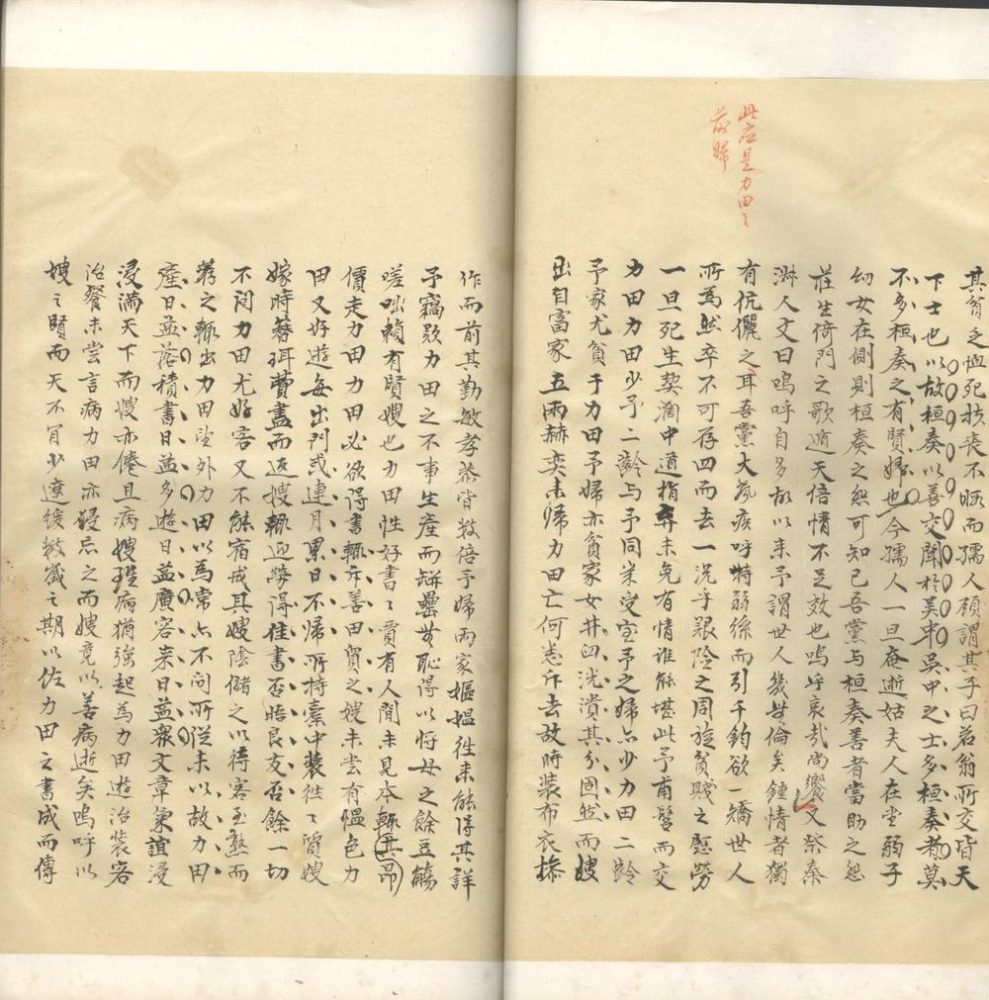 此应是力田之
前婦
其貧乏恤死扶喪不暇而孺人顧謂其子曰若翁所交皆天
下士也以故桓奏以善交聞於吴中吴中之士多桓奏者莫
不多桓奏之有賢婦也今孺人一旦奄逝姑夫人在堂弱子
幼女在側則桓奏之怨可知已吾黨与桓奏善者當助之怨
莊生倚門之歌遁天倍情不足效也嗚乎哀哉尚饗又祭秦
淋人文曰嗚呼自多故以来予謂世人幾無倫矣鍾情者獨
有伉儷之耳吾黨大氐疾呼特弱絲而引千鈞欲一矯世人
所為然卒不可存四而去一况乎艱險之周旋貧賤之慰勞
一旦死生契濶中道捐弃未免有情谁能堪此予甫髫而交
力田力田少予二齡与予同業受室予之婦亦少力田二齡
予家尤貧于力田予婦亦貧家女井臼洸潰其分固然而嫂
出自富家五兩赫奕未歸力田亡何悉斥去故時装布衣操
作而前其勤敏孝恭皆数倍予婦兩家嫗媪徃来能得其詳
予竊歎力田之不事生產而缾罍無恥得以将母之餘豆觴
嗟咄賴有賢嫂也力田性好書〻賈有人間未見本輒其昂
價走力田力田必欲得書輒斥善田貿之嫂未尝有愠色力
田又好遊每出門或連月累日不歸所持橐中装徃〻質嫂
嫁時簪珥費盡而返嫂輒迎勞得佳書否晤良友否餘一切
不问力田尤好客又不能宿戒其嫂陰儲之以待客至熟而
薦之輒出力田望外力田以為常亦不问所從来以故力田
產日益落積書日益多遊日益廣客来日益衆文章氣誼浸
浸满天下而嫂亦僊且病嫂雖病猶強起為力田遊治装客
治餐未尝言病力田亦浸忘之而嫂竟以善病逝矣嗚呼以
嫂之賢而天不肎少遼缓数歲之期以佐力田之書成而傳